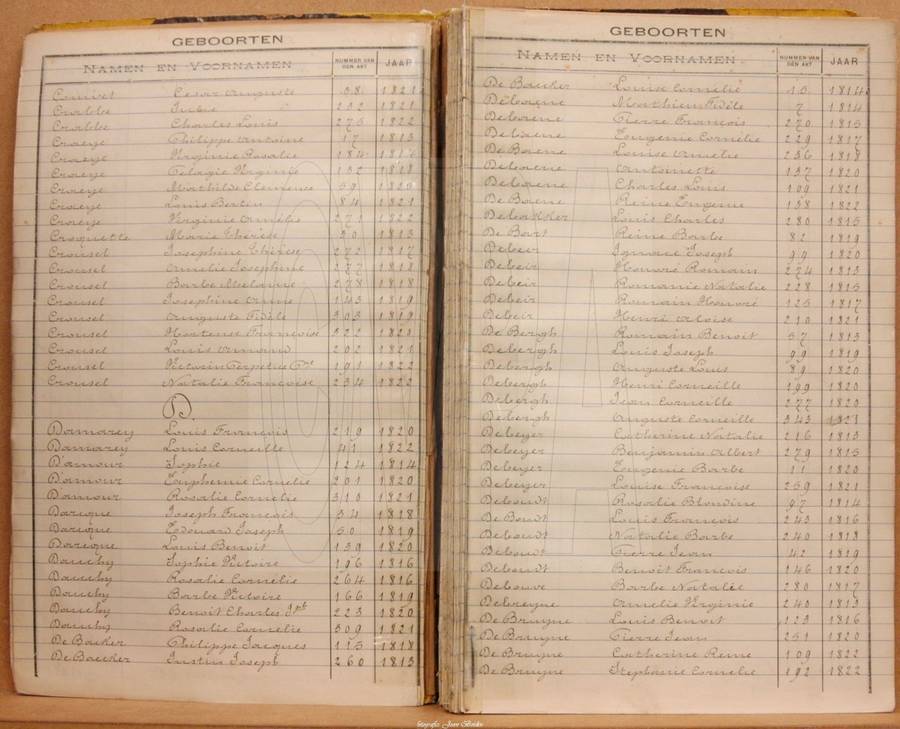 GEBOORTEN
NAMEN EN VOORNAMEN NUMMER VAN DEN AKT JAAR
Cesar Auguste 58 1821
Crabbe Julie 212 1821
Crabbe Charles Louis 275 1822
Craeye Philippe Antoine 17 1813
Craeye Virginie Rosalie 184
Craeye Pelagie Virginie 132 1818
Craeye Mathilde Clemence 59 1820
Craeye Louis Bertin 84 1821
Craeye Virginie Amelie 271 1822
Croquette Marie Therese 30 1813
Crousel Josephine Thérèse 272 1817
Crousel Amelie Josephine 277 1818
Crousel Barbe Melanie 278 1818
Crousel Josephine Anne 143 1819
Crousel Auguste Fidèle 303 1819
Crousel Hortense Françoise 322 1820
Crousel Louis Armand 202 1821
Crousel Victorin 191 1822
Crousel Natalie Françoise 234 1822
D
Damarey Louis François 219 1820
Damarey Louis Corneille 41 1822
D'amour Sophie 124 1814
D'amour Euphemie Cornelie 201 1820
D'amour Rosalie Cornelie 310 1821
Darique Joseph François 34 1818
Darique Edouard Joseph 50 1819
Darique Louis Benoit 139 1820
Dauchy Sophie Victoire 196 1816
Dauchy Rosalie Cornelie 264 1816
Dauchy Barbe Victoire 166 1819
Dauchy Benoit Charles Jph 223 1820
Dauchy Rosalie Cornelie 309 1821
De Backer Philippe Jacques 115 1818
De Baecker Justin Joseph 260 1813
GEBOORTEN
NAMEN EN VOORNAMEN NUMMER VAN DEN AKT JAAR
De Backer Louise Cornélie 15 1814
Debaene Mathieu Fidèle 7 1814
Debaene Pierre François 270 1815
Debaene Eugenie Cornélie 229 1817
De Baene Louise Amelie 236 1818
Debaene Antoinette 137 1820
Debaene Charles Louis 109 1821
De Baene Reine Eugenie 138 1822
Louis Charles 280 1815
De Bart Reine Barbe 82 1819
Debeir Ignace Joseph 99 1820
Debeir Honoré Romain 274 1813
Debeir Romanie Natalie 228 1815
Debeir Romain Honoré 125 1817
Debeir Henri Aloise 210 1821
De Bergh Romain Benoit 57 1813
Debergh Louis Joseph 99 1819
Debergh Auguste Louis 89 1820
Debergh Henri Corneille 199 1820
Debergh Jean Corneille 277 1820
Debergh Auguste Corneille 343 1821
Debeyer Catherine Natalie 216 1813
Debeyer Benjamin Albert 279 1815
Debeyer Eugenie Barbe 11 1820
Debeyer Louise Françoise 259 1821
Deboudt Rosalie Blondine 97 1814
De Boudt Louis François 243 1816
Deboudt Natalie Barbe 240 1818
Deboudt Pierre Jean 42 1819
Deboudt Benoit François 146 1820
Debouve Barbe Natalie 280 1817
Debreyne Amelie Virginie 240 1813
De Bruyne Louis Benoit 123 1816
De Bruyne Pierre Jean 251 1820
De Bruyne Catherine Reine 109 1822
De Bruyne Stephanie Cornelie 192 1822